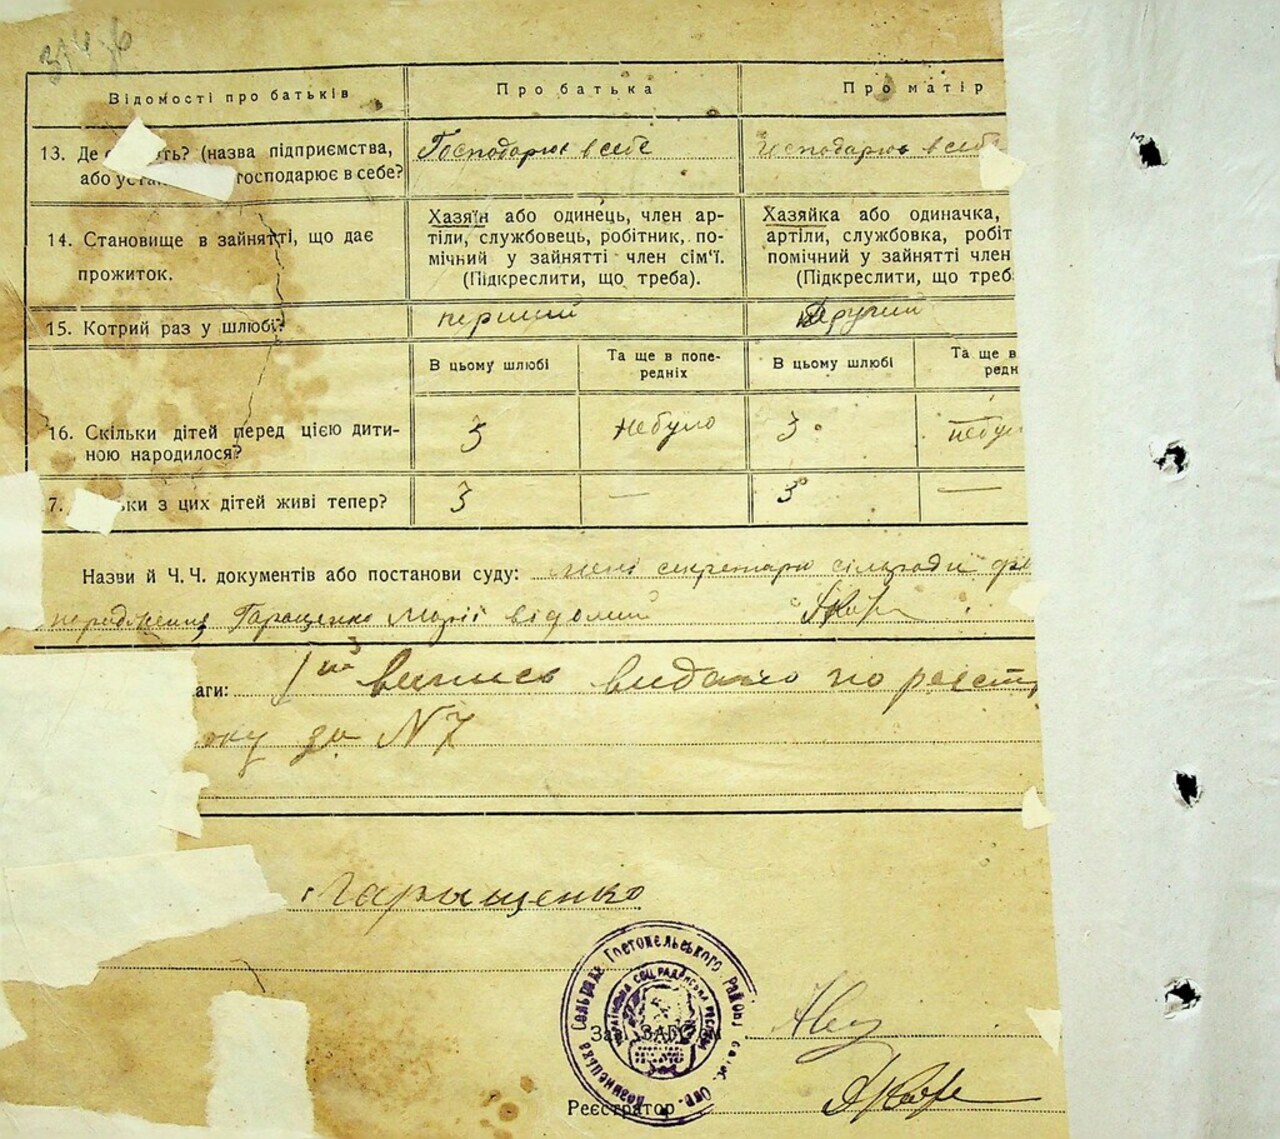 Відомості про батьків
Про батька
Про матір
13. Де ть? (назва підприємства,
або уста господарює в себе?
Господарює в себе
Господарює в себе
14. Становище в зайнятті, що дає
прожиток.
Хазяїн або одинець, член ар-
тілі, службовець, робітник, по-
мічний у зайнятті член сім'ї.
(Підкреслити, що треба).
Хазяйка або одиначка,
артіли, службовка, робіт
помічний у зайнятті член
(Підкреслити, що треб
15. Котрий раз у шлюбі?
перший
другий
В цьому шлюбі
Та ще в попе-
редніх
В цьому шлюбі
Та ще в
редн
16. Скільки дітей перед цією дити-
ною народилося?
3
небуло
3
небул
7. ьки з цих дітей живі тепер?
3
—
3
—
Назви й Ч.Ч. документів або постанови суду: мені секретарю сільради
народження Гаращенко Марії відомий
аги: выпись видано по реєст
оку за N7
Гаращенко
Сольрада Гостомельського Району
Зав. ЗАГС'ом
Реєстратор